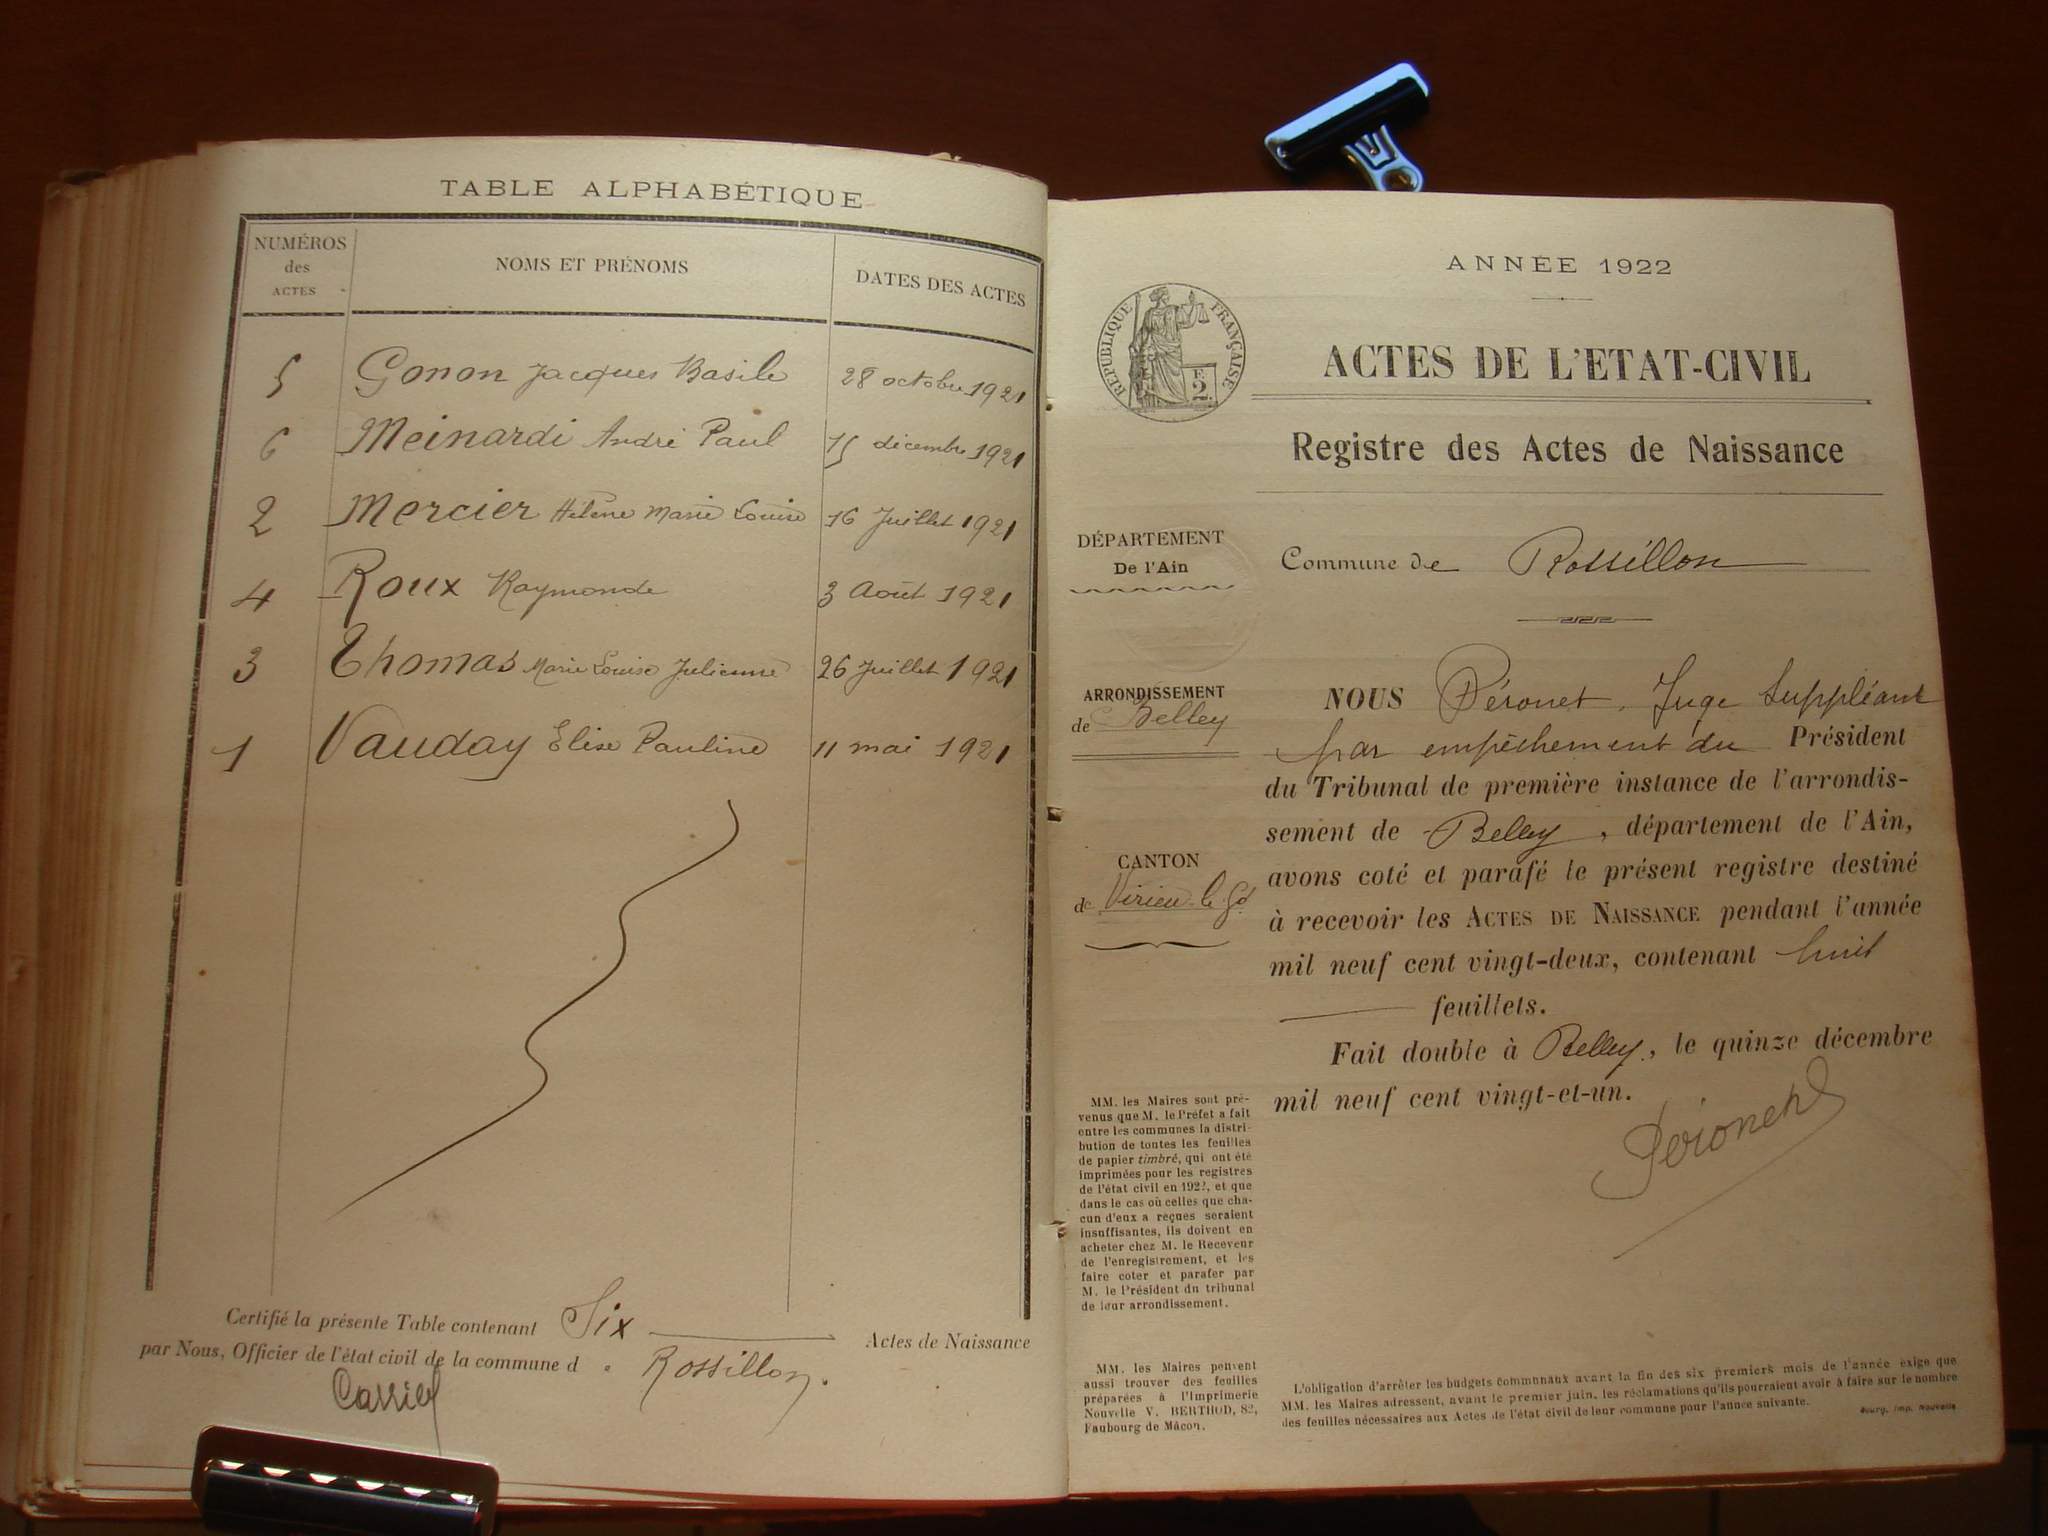 TABLE ALPHABÉTIQUE
NUMÉROS des ACTES
NOMS ET PRÉNOMS
DATES DES ACTES
5 Gonon Jacques Basile 28 octobre 1921
6 Meinardi André Paul 15 décembre 1921
2 Mercier Hélène Marie Louise 16 Juillet 1921
4 Roux Raymonde 3 Août 1921
3 Thomas Marie Louise Julienne 26 Juillet 1921
1 Vauday Elise Pauline 11 mai 1921
Certifié la présente Table contenant Six Actes de Naissance
par Nous, Officier de l'état civil de la commune de Rossillon.
ANNÉE 1922
RÉPUBLIQUE FRANÇAISE
F.
2.
ACTES DE L'ETAT-CIVIL
Registre des Actes de Naissance
DÉPARTEMENT
De l'Ain
Commune de Rossillon
ARRONDISSEMENT
de Belley
CANTON
de Virieu-le-Gd
NOUS Péronet, Juge Suppléant
par empêchement du Président
du Tribunal de première instance de l'arrondis-
sement de Belley, département de l'Ain,
avons coté et parafé le présent registre destiné
à recevoir les ACTES DE NAISSANCE pendant l'année
mil neuf cent vingt-deux, contenant huit
feuillets.
Fait double à Belley, le quinze décembre
mil neuf cent vingt-et-un.
Péronet
MM. les Maires sont pré-
venus que M. le Préfet a fait
entre les communes la distri-
bution de toutes les feuilles
de papier timbré, qui ont été
imprimées pour les registres
de l'état civil en 1922, et que
dans le cas où celles que cha-
cun d'eux a reçues seraient
insuffisantes, ils doivent en
acheter chez M. le Receveur
de l'enregistrement, et les
faire coter et parafer par
M. le Président du tribunal
de leur arrondissement.
MM. les Maires peuvent
aussi trouver des feuilles
préparées à l'Imprimerie
Nouvelle V. BERTHOD, 82,
Faubourg de Mâcon.
L'obligation d'arrêter les budgets communaux avant la fin des six premiers mois de l'année exige que
MM. les Maires adressent, avant le premier juin, les réclamations qu'ils pourraient avoir à faire sur le nombre
des feuilles nécessaires aux Actes de l'état civil de leur commune pour l'année suivante.
Bourg, Imp. Nouvelle